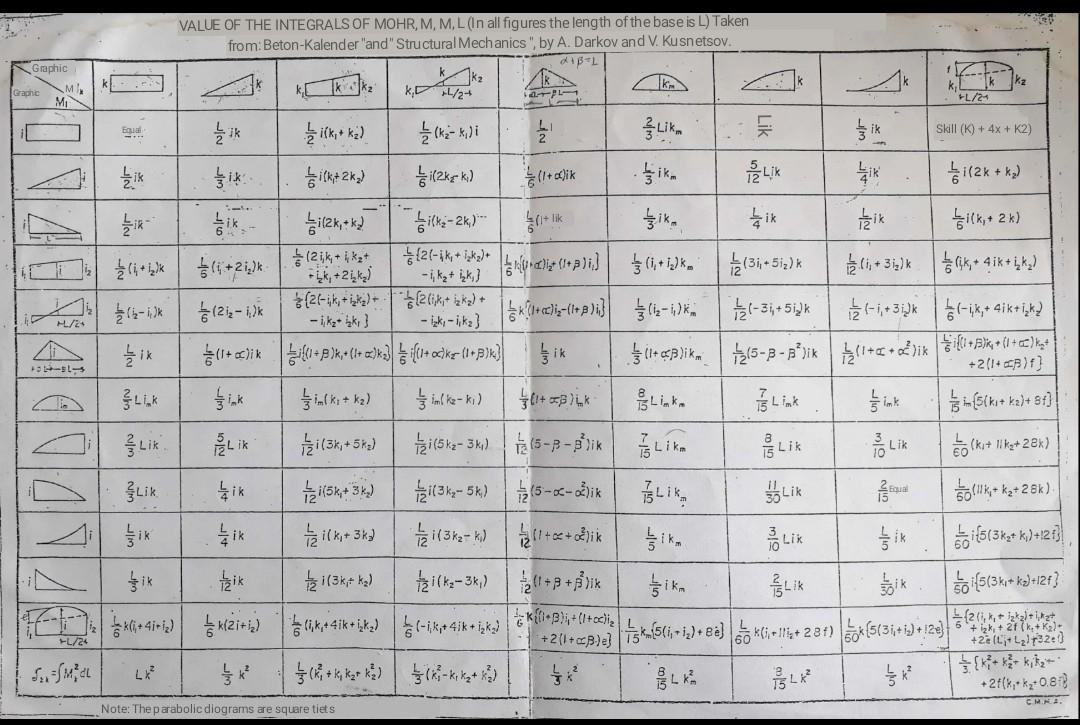 VALUE OF THE INTEGRALS OF MOHR, M, M, L (In all figures the length of the base is L) Taken
from: Beton-Kalender "and" Structural Mechanics ", by A. Darkov and V. Kusnetsov.
Graphic M1k
Graphic M1
k
k
k₁ k k₂
k₁ k k₂ L/2
α+β=L k
kₘ
k
k
f k₁ k k₂ L/2
i Equal L/2 ik L/2 i(k₁+k₂) L/2 (k₂-k₁)i L/2 2/3 Likₘ Lik L/3 ik Skill (K) + 4x + K2)
i L/2 ik L/3 ik L/6 i(k₁+2k₂) L/6 i(2k₂-k₁) L/6 (1+α)ik L/3 ikₘ 5/12 Lik L/4 ik L/6 i(2k+k₂)
i L/2 ik L/6 ik L/6 i(2k₁+k₂) L/6 i(k₂-2k₁) L/6 (1+ lik L/3 ikₘ L/4 ik L/12 ik L/6 i(k₁+2k)
i₁ i i₂ L/2 (i₁+i₂)k L/6 (i₁+2i₂)k L/6 (2i₁k₁+i₁k₂+ +i₂k₁+2i₂k₂) L/6 {2(-i₁k₁+i₂k₂)+ -i₁k₂+i₂k₁} L/6 k{(1+α)i₂+(1+β)i₁} L/3 (i₁+i₂)kₘ L/12 (3i₁+5i₂)k L/12 (i₁+3i₂)k L/6 (i₁k₁+4ik+i₂k₂)
i₁ i₂ L/2 L/2 (i₂-i₁)k L/6 (2i₂-i₁)k L/6 {2(-i₁k₁+i₂k₂)+ -i₁k₂+i₂k₁} L/6 {2(i₁k₁+i₂k₂)+ -i₂k₁-i₁k₂} L/6 k{(1+α)i₂-(1+β)i₁} L/3 (i₂-i₁)kₘ L/12 (-3i₁+5i₂)k L/12 (-i₁+3i₂)k L/6 (-i₁k₁+4ik+i₂k₂)
i L/2 ik L/6 (1+α)ik L/6 i{(1+β)k₁+(1+α)k₂} L/6 i{(1+α)k₂-(1+β)k₁} L/3 ik L/3 (1+αβ)ikₘ L/12 (5-β-β²)ik L/12 (1+α+α²)ik L/6 i{(1+β)k₁+(1+α)k₂+ +2(1+αβ)f}
iₘ 2/3 Liₘk L/3 iₘk L/3 iₘ(k₁+k₂) L/3 iₘ(k₂-k₁) L/3 (1+αβ)iₘk 8/15 Liₘkₘ 7/15 Liₘk L/5 iₘk L/15 iₘ{5(k₁+k₂)+8f}
i 2/3 Lik 5/12 Lik L/12 i(3k₁+5k₂) L/12 i(5k₂-3k₁) L/12 (5-β-β²)ik 7/15 Likₘ 8/15 Lik 3/10 Lik L/60 (k₁+11k₂+28k)
i 2/3 Lik L/4 ik L/12 i(5k₁+3k₂) L/12 i(3k₂-5k₁) L/12 (5-α-α²)ik 7/15 Likₘ 11/30 Lik 2/15 Equal L/60 (11k₁+k₂+28k)
i L/3 ik L/4 ik L/12 i(k₁+3k₂) L/12 i(3k₂-k₁) L/12 (1+α+α²)ik L/5 ikₘ 3/10 Lik L/5 ik L/60 i{5(3k₂+k₁)+12f}
i L/3 ik L/12 ik L/12 i(3k₁+k₂) L/12 i(k₂-3k₁) L/12 (1+β+β²)ik L/5 ikₘ 2/15 Lik L/30 ik L/60 i{5(3k₁+k₂)+12f}
e i₁ i i₂ L/2 L/6 k(i₁+4i+i₂) L/6 k(2i+i₂) L/6 (i₁k₁+4ik+i₂k₂) L/6 (-i₁k₁+4ik+i₂k₂) L/6 k{(1+β)i₁+(1+α)i₂ +2(1+αβ)e} L/15 kₘ{5(i₁+i₂)+8e} L/60 k(i₁+11i₂+28f) L/60 k{5(3i₁+i₂)+12e} L/6 {2(i₁k₁+i₂k₂)+i₁k₂+ +i₂k₁+2f(k₁+k₂)+ +2e(L₁+L₂)+32e}
∫M₁²dL Lk² L/3 k² L/3 (k₁²+k₁k₂+k₂²) L/3 (k₁²-k₁k₂+k₂²) L/3 k² 8/15 Lkₘ² 8/15 Lk² L/5 k² L/3 {k₁²+k₂²+k₁k₂+ +2f(k₁+k₂+0.8f}
Note: The parabolic diograms are square tiets
C.M.H.Z.